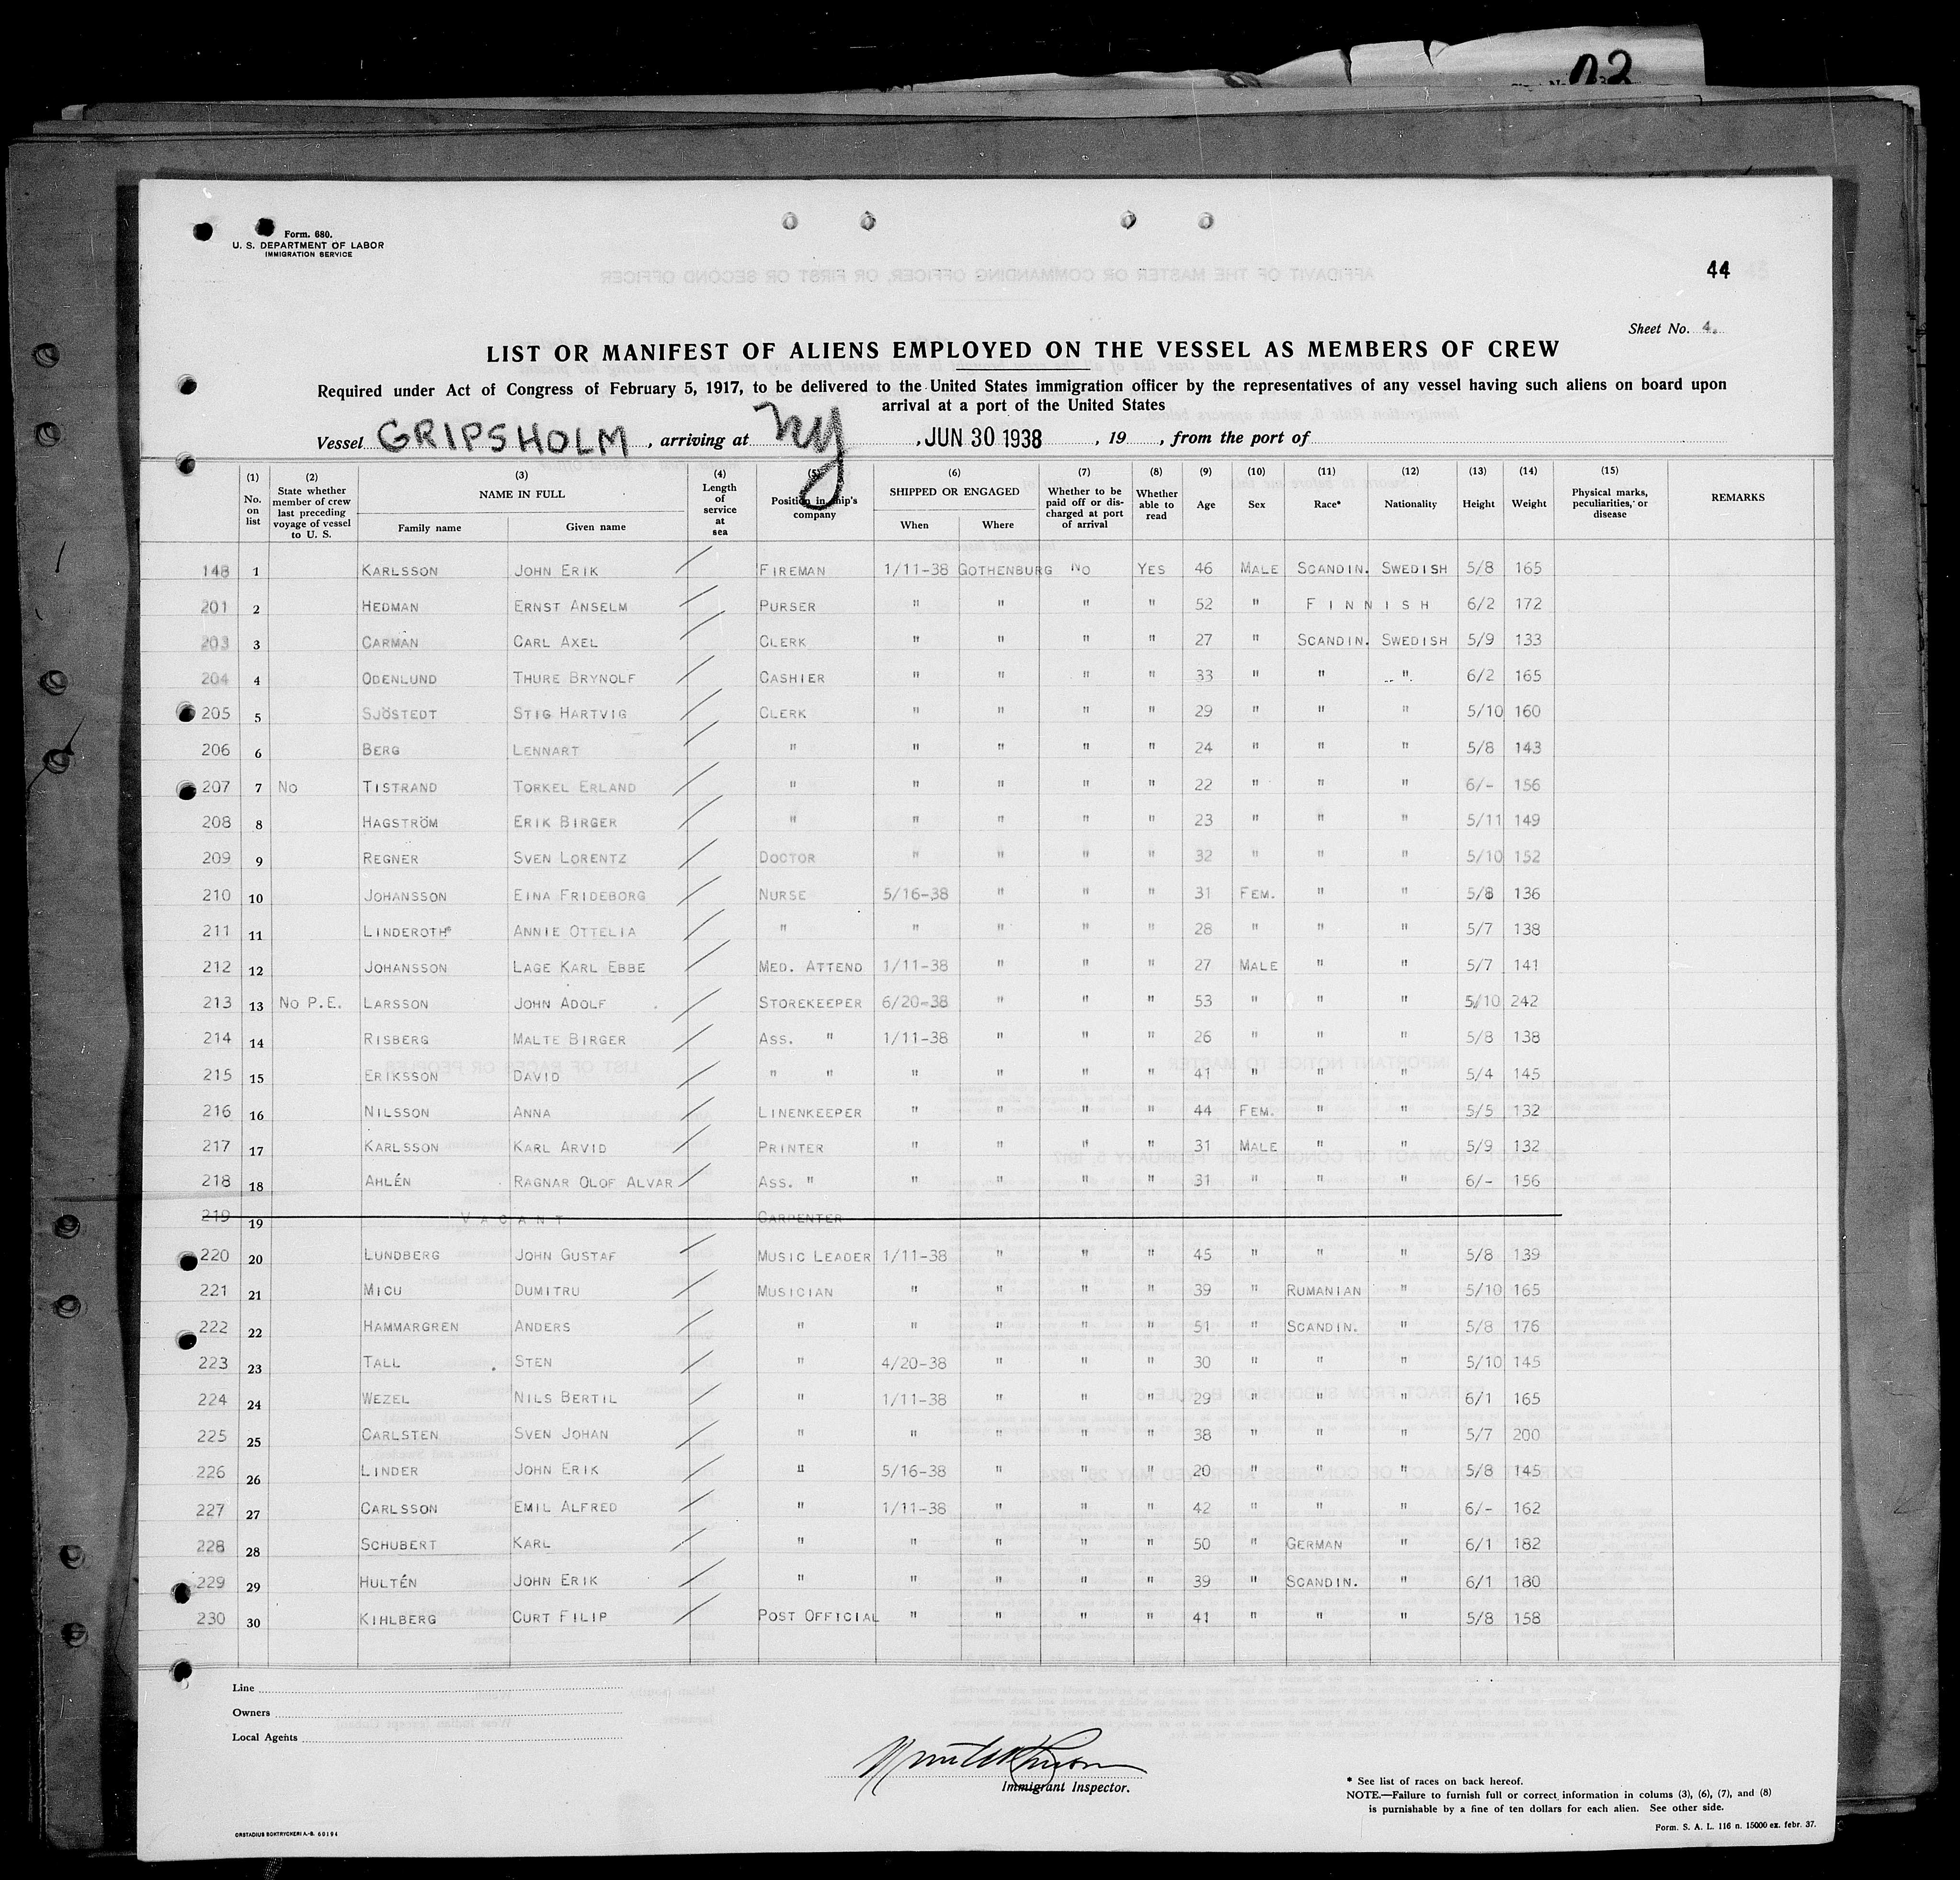 Form. 680.
U. S. DEPARTMENT OF LABOR
IMMIGRATION SERVICE
44
Sheet No. 4.
LIST OR MANIFEST OF ALIENS EMPLOYED ON THE VESSEL AS MEMBERS OF CREW
Required under Act of Congress of February 5, 1917, to be delivered to the United States immigration officer by the representatives of any vessel having such aliens on board upon
arrival at a port of the United States
Vessel GRIPSHOLM, arriving at NY, JUN 30 1938, 19, from the port of
(1) No. on list (2) State whether member of crew last preceding voyage of vessel to U. S. (3) NAME IN FULL Family name Given name (4) Length of service at sea (5) Position in ship's company (6) SHIPPED OR ENGAGED When Where (7) Whether to be paid off or discharged at port of arrival (8) Whether able to read (9) Age (10) Sex (11) Race* (12) Nationality (13) Height (14) Weight (15) Physical marks, peculiarities, or disease REMARKS
148 1 KARLSSON JOHN ERIK / FIREMAN 1/11-38 GOTHENBURG NO YES 46 MALE SCANDIN. SWEDISH 5/8 165
201 2 HEDMAN ERNST ANSELM / PURSER " " " " 52 " FINNISH 6/2 172
203 3 CARMAN CARL AXEL / CLERK " " " " 27 " SCANDIN. SWEDISH 5/9 133
204 4 ODENLUND THURE BRYNOLF / CASHIER " " " " 33 " " " 6/2 165
205 5 SJÖSTEDT STIG HARTVIG / CLERK " " " " 29 " " " 5/10 160
206 6 BERG LENNART / " " " " " 24 " " " 5/8 143
207 7 NO TISTRAND TORKEL ERLAND / " " " " " 22 " " " 6/- 156
208 8 HAGSTRÖM ERIK BIRGER / " " " " " 23 " " " 5/11 149
209 9 REGNER SVEN LORENTZ / DOCTOR " " " " 32 " " " 5/10 152
210 10 JOHANSSON EINA FRIDEBORG / NURSE 5/16-38 " " " 31 FEM. " " 5/8 136
211 11 LINDEROTH ANNIE OTTELIA / " " " " " 28 " " " 5/7 138
212 12 JOHANSSON LAGE KARL EBBE / MED. ATTEND 1/11-38 " " " 27 MALE " " 5/7 141
213 13 NO P.E. LARSSON JOHN ADOLF / STOREKEEPER 6/20-38 " " " 53 " " " 5/10 242
214 14 RISBERG MALTE BIRGER / ASS. " 1/11-38 " " " 26 " " " 5/8 138
215 15 ERIKSSON DAVID / " " " " " " 41 " " " 5/4 145
216 16 NILSSON ANNA / LINENKEEPER " " " " 44 FEM. " " 5/5 132
217 17 KARLSSON KARL ARVID / PRINTER " " " " 31 MALE " " 5/9 132
218 18 AHLÉN RAGNAR OLOF ALVAR / ASS. " " " " " 31 " " " 6/- 156
219 19 VACANT CARPENTER
220 20 LUNDBERG JOHN GUSTAF / MUSIC LEADER 1/11-38 " " " 45 " " " 5/8 139
221 21 MICU DUMITRU / MUSICIAN " " " " 39 " RUMANIAN " 5/10 165
222 22 HAMMARGREN ANDERS / " " " " " 51 " SCANDIN. " 5/8 176
223 23 TALL STEN / " 4/20-38 " " " 30 " " " 5/10 145
224 24 WEZEL NILS BERTIL / " 1/11-38 " " " 29 " " " 6/1 165
225 25 CARLSTEN SVEN JOHAN / " " " " " 38 " " " 5/7 200
226 26 LINDER JOHN ERIK / " 5/16-38 " " " 20 " " " 5/8 145
227 27 CARLSSON EMIL ALFRED / " 1/11-38 " " " 42 " " " 6/- 162
228 28 SCHUBERT KARL / " " " " " 50 " GERMAN " 6/1 182
229 29 HULTÉN JOHN ERIK / " " " " " 39 " SCANDIN. " 6/1 180
230 30 KIHLBERG CURT FILIP / POST OFFICIAL " " " " 41 " " " 5/8 158
Line
Owners
Local Agents
Immigrant Inspector.
* See list of races on back hereof.
NOTE.—Failure to furnish full or correct information in colums (3), (6), (7), and (8)
is punishable by a fine of ten dollars for each alien. See other side.
ORSTADIUS BOKTRYCKERI A.-B. 60194
Form. S. A. L. 116 n. 15000 ex. febr. 37.